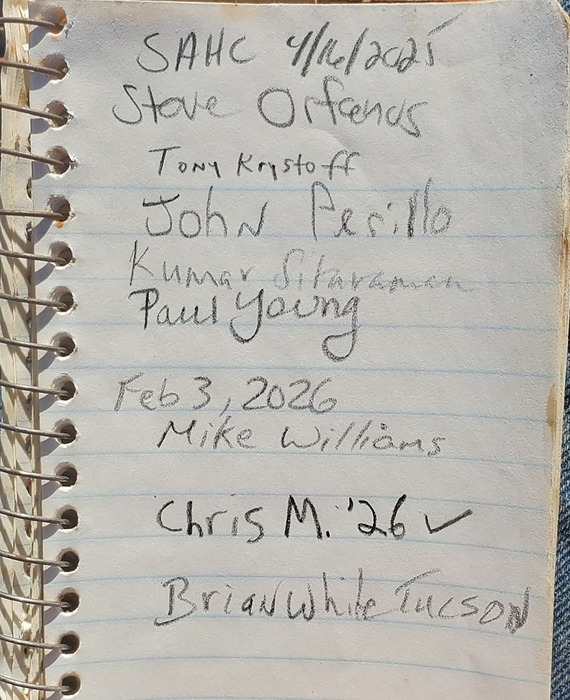 SAHC 4/16/2025
Steve Orfanos
Tony Krystoff
John Perillo
Kumar Sitaraman
Paul Young
Feb 3, 2026
Mike Williams
Chris M. '26 ✓
Brian White Tucson